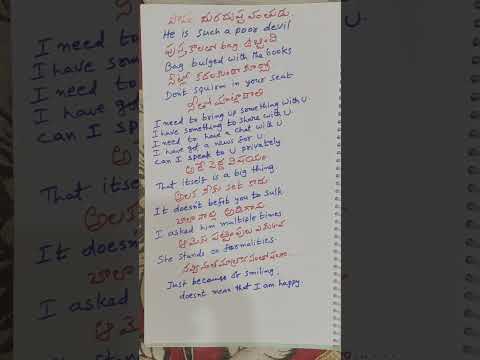 పాపం
He is such a poor devil
పుస్తకాలతో bag ఉబ్బింది
Bag bulged with the books
Dont squirm in your seat
నీతో మాట్లాడాలి
I need to bring up something with U.
I have something to share with U.
I need to have a chat with U
I have got a news for U.
can I speak to U privately
అదే పెద్ద విషయం
That itself is a big thing.
అలక నీకు set కాదు
It doesn't befit you to sulk
చాలా సార్లు అడిగాను
I asked him multiple times
ఆమెకు పట్టింపులు ఎక్కువ
She stands on formalities.
Just because of smiling,
doesnt mean that I am happy.